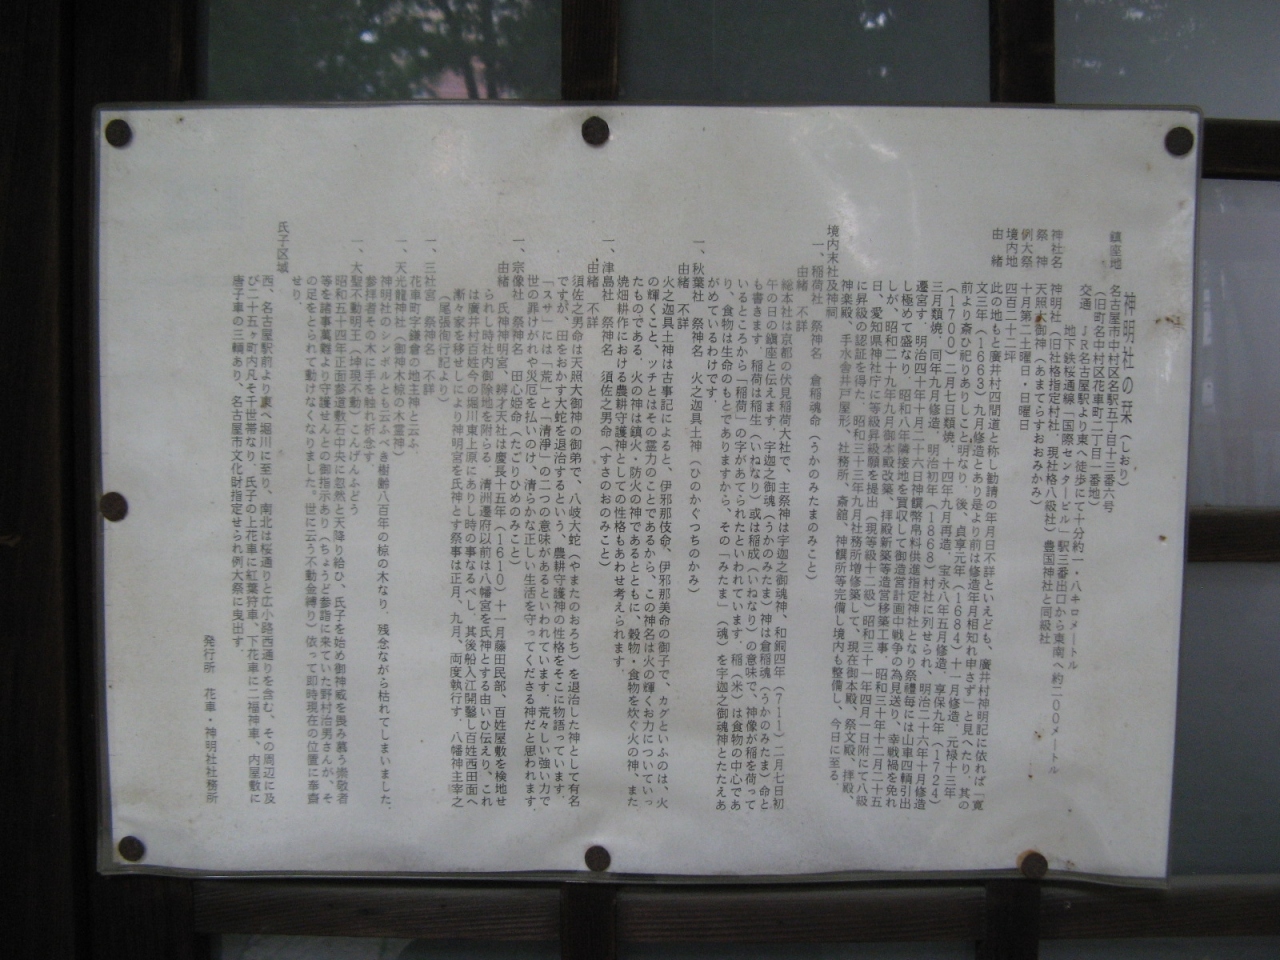 神明社の栞（しおり）
鎮座地　名古屋市中村区名駅五丁目十三番六号
（旧町名中村区花車町二丁目一番地）
交通　ＪＲ名古屋駅より東へ徒歩にて十分約一・八キロメートル
地下鉄桜通線「国際センタービル」駅三番出口から東南へ約二００メートル
神社名　神明社（旧社格指定村社、現社格八級社）豊国神社と同級社
祭　神　天照大御神（あまてらすおおみかみ）
例大祭　十月第二土曜日・日曜日
境内地　四百二十二坪
由　緒　此の地もと廣井村四間道と称し勧請の年月日不詳といえども、廣井村神明記に依れば「寛
文三年（１６６３）九月修造とあり是より前は修造年月相知れ申さず」と見へたり、其の
前より斎ひ祀りありしこと明なり、後、貞享元年（１６８４）十一月修造、元禄十三年
（１７００）二月七日類焼、十四年九月再造、宝永八年五月修造、享保九年（１７２４）
三月類焼、同年九月修造、明治初年（１８６８）村社に列せられ、明治二十六年十月修造
遷宮す、明治四十年十月二十六日神饌幣帛料供進指定神社となり祭禮毎には山車四輌引出
し極めて盛なり、昭和八年隣接地を買収して御造営計画中戦争の為見送り、幸戦禍を免れ
しが、昭和二十九年九月御本殿改築、拝殿新築等造営移築工事、昭和三十年十二月二十五
日、愛知県神社庁に等級昇級願を提出（現等級十二級）昭和三十一年四月一日附にて八級
に昇級の認証を得た、昭和三十三年九月社務所増修築して、現在御本殿、祭文殿、拝殿、
神楽殿、手水舎井戸屋形、社務所、斎館、神饌所等完備し境内も整備し、今日に至る。
境内末社及神祠
一、稲荷社　祭神名　倉稲魂命（うかのみたまのみこと）
由緒　不詳
総本社は京都の伏見稲荷大社で、主祭神は宇迦之御魂神、和銅四年（７１１）二月七日初
午の日の鎮座と伝えます。宇迦之御魂（うかのみたま）神は倉稲魂（うかのみたま）命と
も書きます。稲荷は稲生（いねなり）或は稲成（いねなり）の意味で、神像が稲を荷って
いるところから「稲荷」の字があてられたといわれています。稲（米）は食物の中心であ
り、食物は生命のもとでありますから、その「みたま」（魂）を宇迦之御魂神とたたえあ
がめているわけです。
一、秋葉社　祭神名　火之迦具土神（ひのかぐつちのかみ）
由緒　不詳
火之迦具土神は古事記によると、伊邪那伎命、伊邪那美命の御子で、カグといふのは、火
の輝くこと、ツチとはその霊力のことであるから、この神名は火の輝くお力についていっ
たものである。火の神は鎮火・防火の神であるとともに、穀物・食物を炊ぐ火の神、また
焼畑耕作における農耕守護神としての性格もあわせ考えられます。
一、津島社　祭神名　須佐之男命（すさのおのみこと）
由緒　不詳
須佐之男命は天照大御神の御弟で、八岐大蛇（やまたのおろち）を退治した神として有名
ですが、田をおかす大蛇を退治するという、農耕守護神の性格をそこに物語っています。
「スサ」には「荒」と「清浄」の二つの意味があるといわれています。荒々しい強い力で
世の罪けがれや災厄を払いのけ、清らかな正しい生活を守ってくださる神だと思われます。
一、宗像社　祭神名　田心姫命（たごりひめのみこと）
由緒　氏神神明宮、辨才天社は慶長十五年（１６１０）十一月藤田民部、百姓屋敷を検地せ
られし時社内御除地を附らる、清洲遷府以前は八幡宮を氏神とする由いひ伝えり、これ
は廣井村百姓今の堀川東上原にありし時の事なるべし、其後船入江開鑿し百姓西田面へ
漸々家を移せしにより神明宮を氏神とす祭事は正月、九月、両度執行す、八幡神主宰之
（尾張徇行記より）
一、三社宮　祭神名　不詳
花車町字鎌倉の地主神と云ふ
一、天光龍神社（御神木椋の木霊神）
神明社のシンボルとも云ふべき樹齢八百年の椋の木なり、残念ながら枯れてしまいました、
参拝者その木に手を触れ祈念す
一、大聖不動明王（坤現不動）こんげんふどう
昭和五十四年正面参道敷石中央に忽然と天降り給ひ、氏子を始め御神威を畏み慕う崇敬者
等を諸事萬難より守護せんとの御指示あり（ちょうど参詣に来ていた野村治男さんが、そ
の足をとられて動けなくなりました。世に云う不動金縛り）依って即時現在の位置に奉齋
せり。
氏子区域
西、名古屋駅前より東へ堀川に至り、南北は桜通りと広小路西通りを含む、その周辺に及
び二十五ヶ町内凡そ千世帯なり、氏子の上花車に紅葉狩車、下花車に二福神車、内屋敷に
唐子車の三輌あり、名古屋市文化財指定せられ例大祭に曳出す。
発行所　花車・神明社社務所